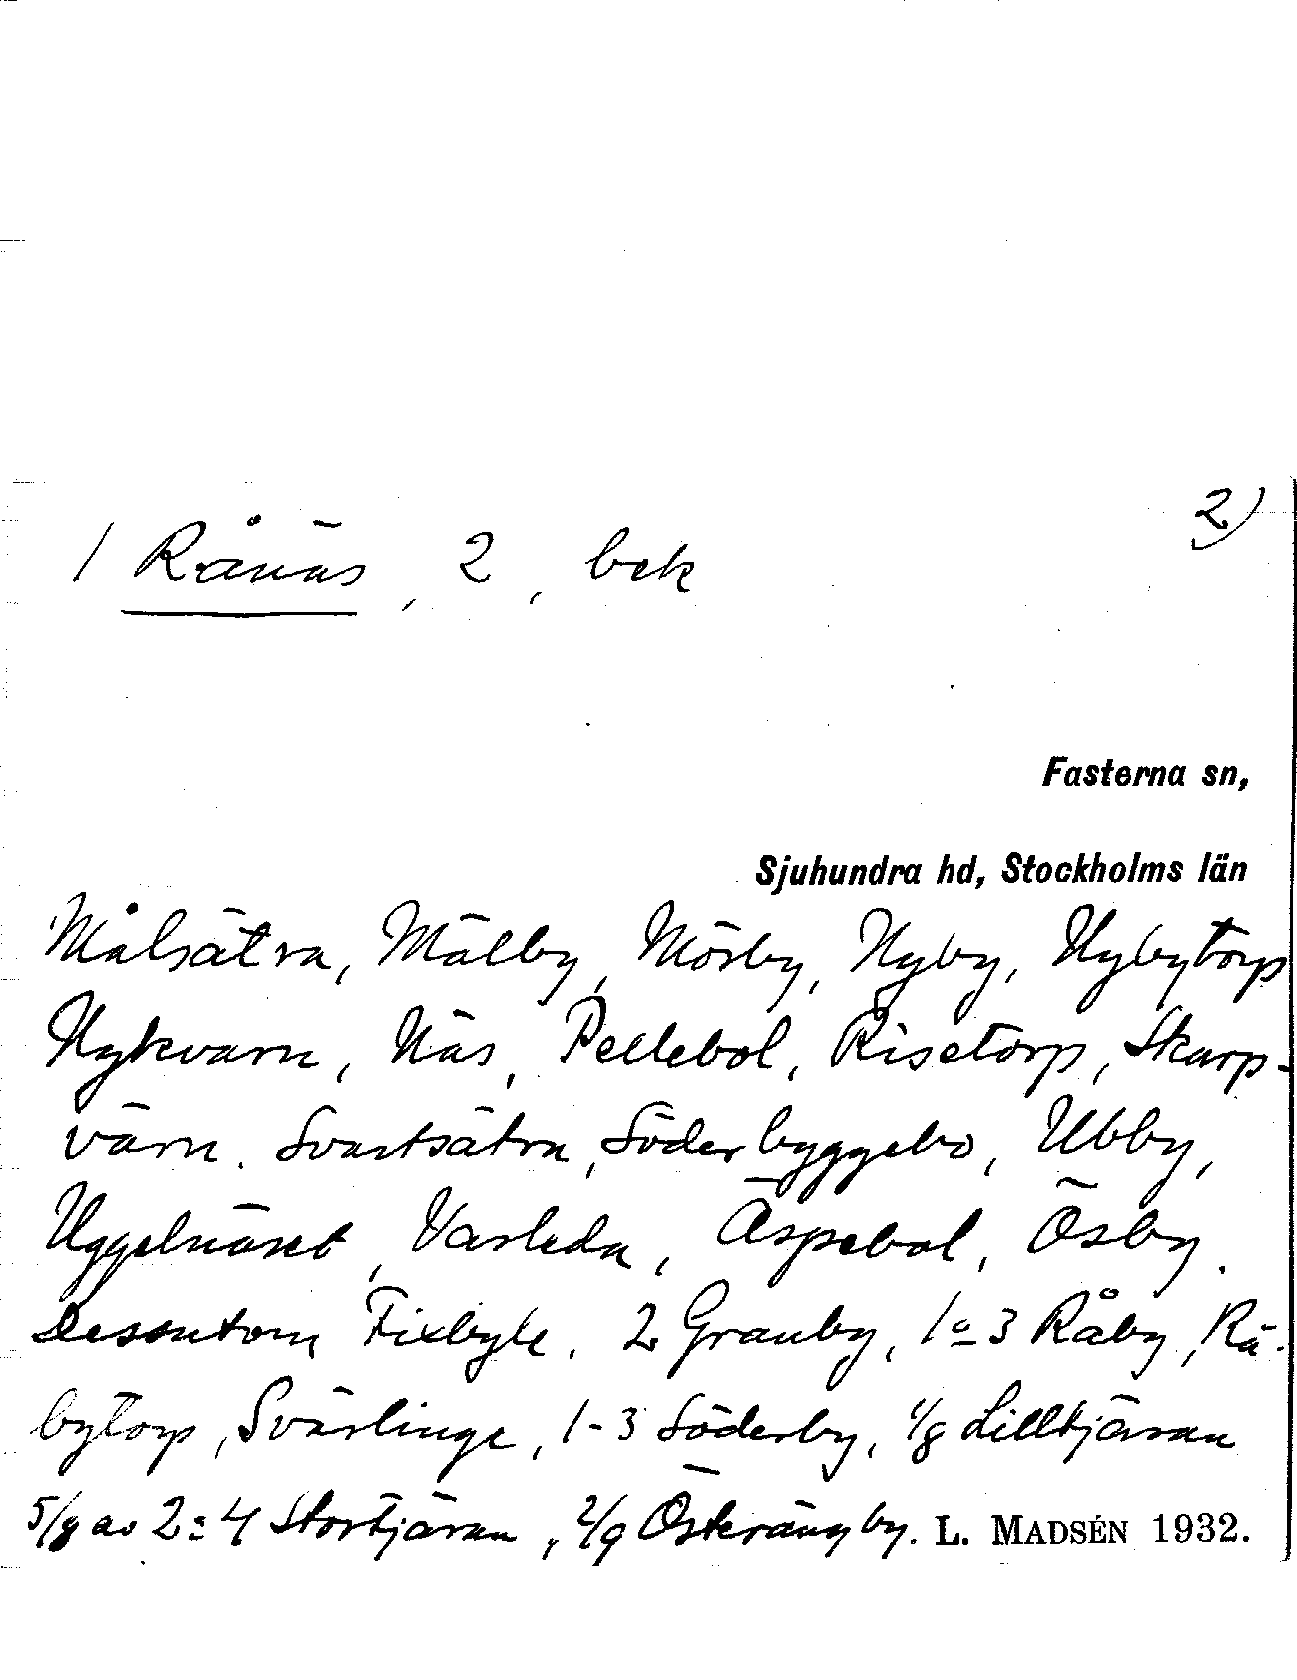 2)
1 Rånäs, 2, bek
Fasterna sn,
Sjuhundra hd, Stockholms län
Målsätra, Mälby, Mörby, Nyby, Nybytorp
Nykvarn, Näs, Pellebol, Risetorp, Skarp-
värn. Svartsätra, Söderbyggebo, Ubby,
Uggelnäset, Varleda, Äspebol, Ösby.
Dessutom Fixbyle, 2 Granby, 1 o 3 Råby, Rå-
bytorp, Svärlinge, 1-3 Söderby, 1/8 Lilltjäran
5/8 av 2:4 Stortjäran, 2/9 Österängby. L. MADSÉN 1932.